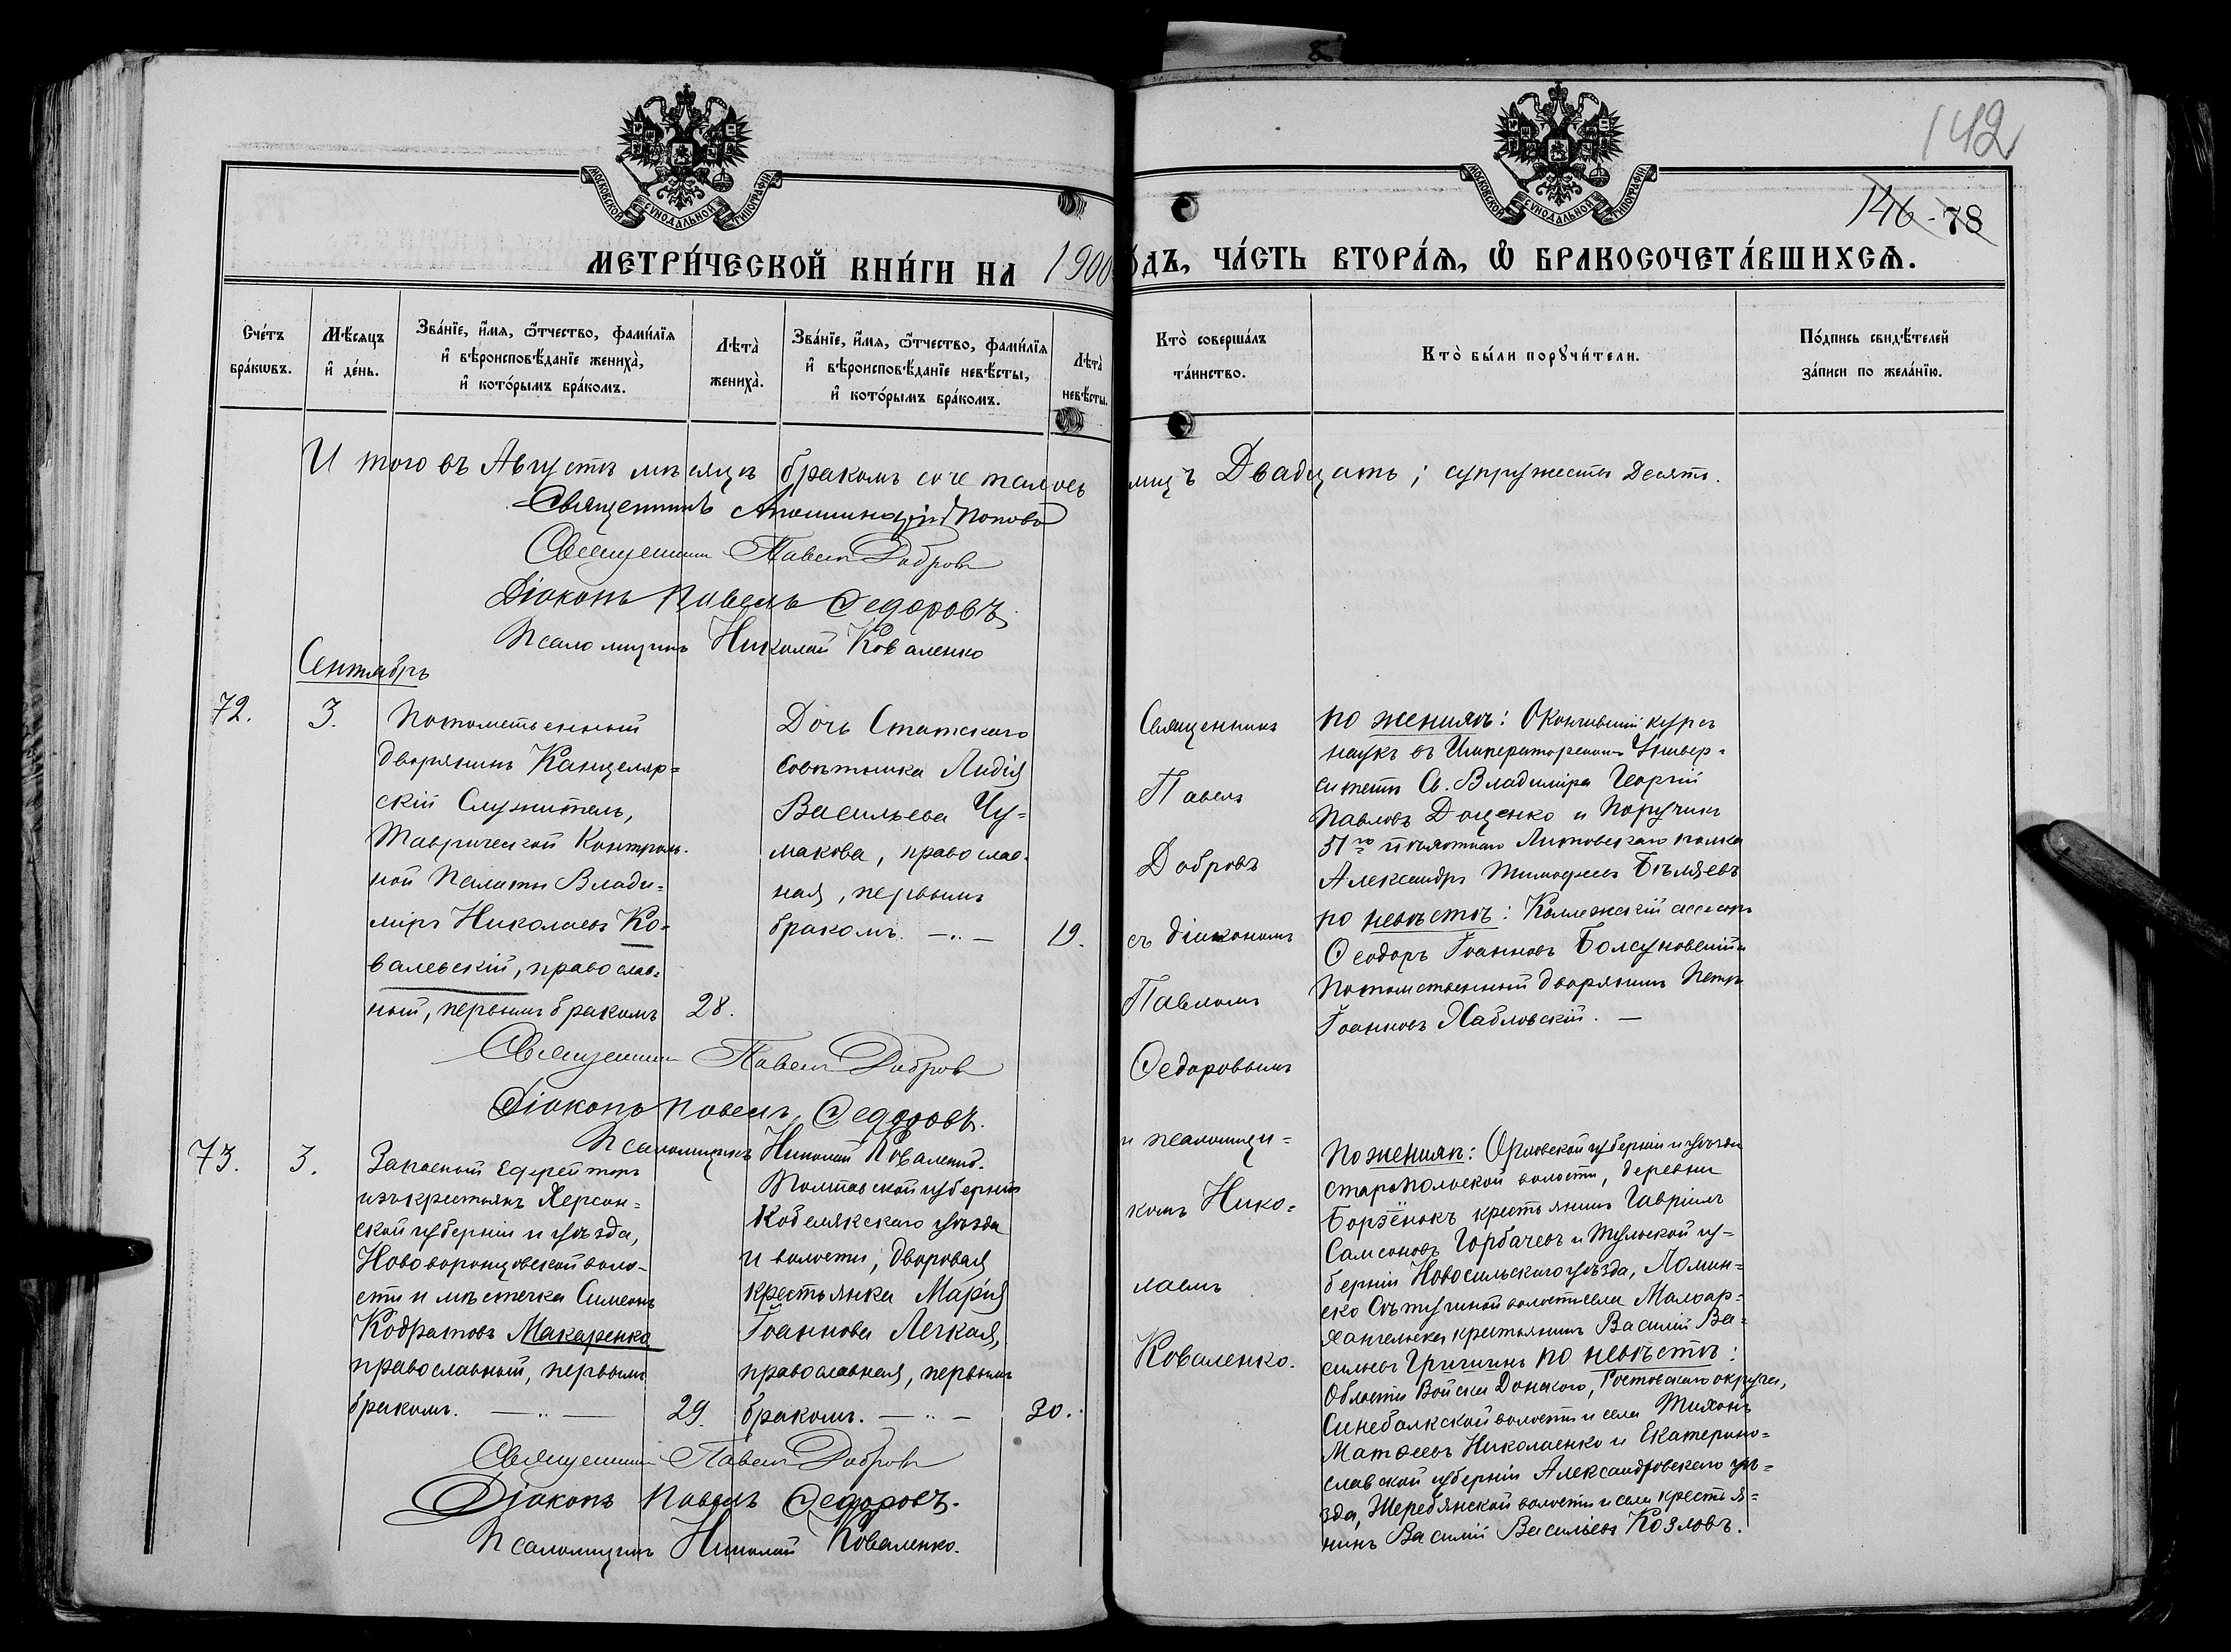 8
142
146 - 78
МОСКОВСКОЙ СУНОДАЛЬНОЙ ТИПОГРАФІИ
МОСКОВСКОЙ СУНОДАЛЬНОЙ ТИПОГРАФІИ
МЕТРИ́ЧЕСКОЙ КНИ́ГИ НА 1900
О́ДЪ, ЧА́СТЬ ВТОРА́Ѧ, Ѽ БРАКОСОЧЕТА́ВШИХСѦ.
Сче́тъ
бра́кѡвъ.
Мѣ́сяцъ
и҆ де́нь.
Зва́нїе, и҆́мя, ѻ҆́тчество, фами́лїя
и҆ вѣроисповѣ́данїе жениха̀,
и҆ кото́рымъ бра́комъ.
Лѣта̀
жениха̀.
Зва́нїе, и҆́мя, ѻ҆́тчество, фами́лїя
и҆ вѣроисповѣ́данїе невѣ́сты,
и҆ кото́рымъ бра́комъ.
Лѣта̀
невѣ́сты.
Кто̀ соверша́лъ
та́инство.
Кто̀ бы́ли порꙋчи́тели.
По́дпись свидѣ́телей
за́писи по жела́нїю.
И того въ Августѣ мѣсяцѣ бракомъ сочеталось
лицъ Двадцать; супружествъ Десять.
Священникъ Аполлинарій Поповъ
Священникъ Павелъ Добровъ
Діаконъ Павелъ Ѳедоровъ
Псаломщикъ Николай Коваленко
Сентябрь
72.
3.
Потомственный
дворянинъ Канцеляр=
скій Служитель,
Таврической Контроль-
ной Палаты Влади=
міръ Николаевъ Ко-
валевскій, православ=
ный, первымъ бракомъ
28.
Дочь Статского
Совѣтника Лидія
Васильева Чу=
макова, православ-
ная, первымъ
бракомъ. —"—
19.
Священникъ
Павелъ
Добровъ
съ діакономъ
Павломъ
Ѳедоровымъ
и псаломщи=
комъ Нико=
лаемъ
Коваленко.
по женихѣ: Окончившій курсъ
наукъ въ Императорскомъ Универ-
ситетѣ Св. Владиміра Георгій
Павловъ Доценко и Поручикъ
51го пѣхотнаго Литовскаго полка
Александръ Тимофеевъ Бѣляевъ
по невѣстѣ: Коллежскій ассесоръ
Ѳеодоръ Іоанновъ Болсуновскій и
Потомственный дворянинъ Петръ
Іоанновъ Хабловскій. —
Священникъ Павелъ Добровъ
Діаконъ Павелъ Ѳедоровъ.
Псаломщикъ Николай Коваленко.
73.
3.
Запасный Ефрейторъ
изъ крестьянъ Херсон=
ской губерніи и уѣзда,
Нововоронцовской воло-
сти и мѣстечка Симеонъ
Кодратовъ Макаренко,
православный, первымъ
бракомъ. —"—
29.
Полтавской губерніи
Кобелякскаго уѣзда
и волости, дворовая
крестьянка Марія
Іоаннова Легкая,
православная, первымъ
бракомъ. —"—
30.
По женихѣ: Орловской губерніи и уѣзда
Старопольской волости, деревни
Борзёнокъ крестьянинъ Гавріилъ
Самсоновъ Горбачевъ и Тульской гу-
берніи Новосильскаго уѣзда,
волости села Малоар-
хангельска крестьянинъ Василій Ва-
сильевъ по невѣстѣ:
Области Войска Донскаго, Ростовскаго округа,
Синебалкской волости и села Тихонъ
Матѳеевъ Николаенко и Екатерино-
славской губерніи Александровскаго уѣ=
зда, Жеребянской волости и села крестья=
нинъ Василій Васильевъ Козловъ.
Священникъ Павелъ Добровъ
Діаконъ Павелъ Ѳедоровъ.
Псаломщикъ Николай Коваленко.